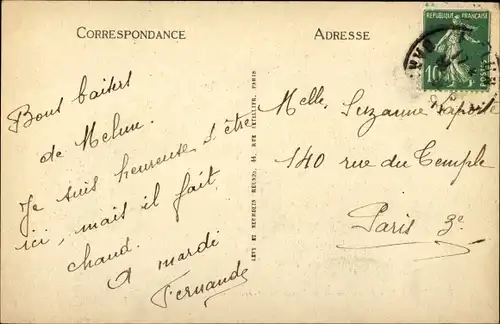 CORRESPONDANCE
Bons baisers
de Melun.
Je suis heureuse d'être
ici, mais il fait
chaud.
A mardi
Fernande
LEVY ET NEURDEIN RÉUNIS, 44, RUE LETELLIER, PARIS
ADRESSE
REPUBLIQUE FRANÇAISE
10
POSTES
Melle Suzanne Laporte
140 rue du Temple
Paris 3e